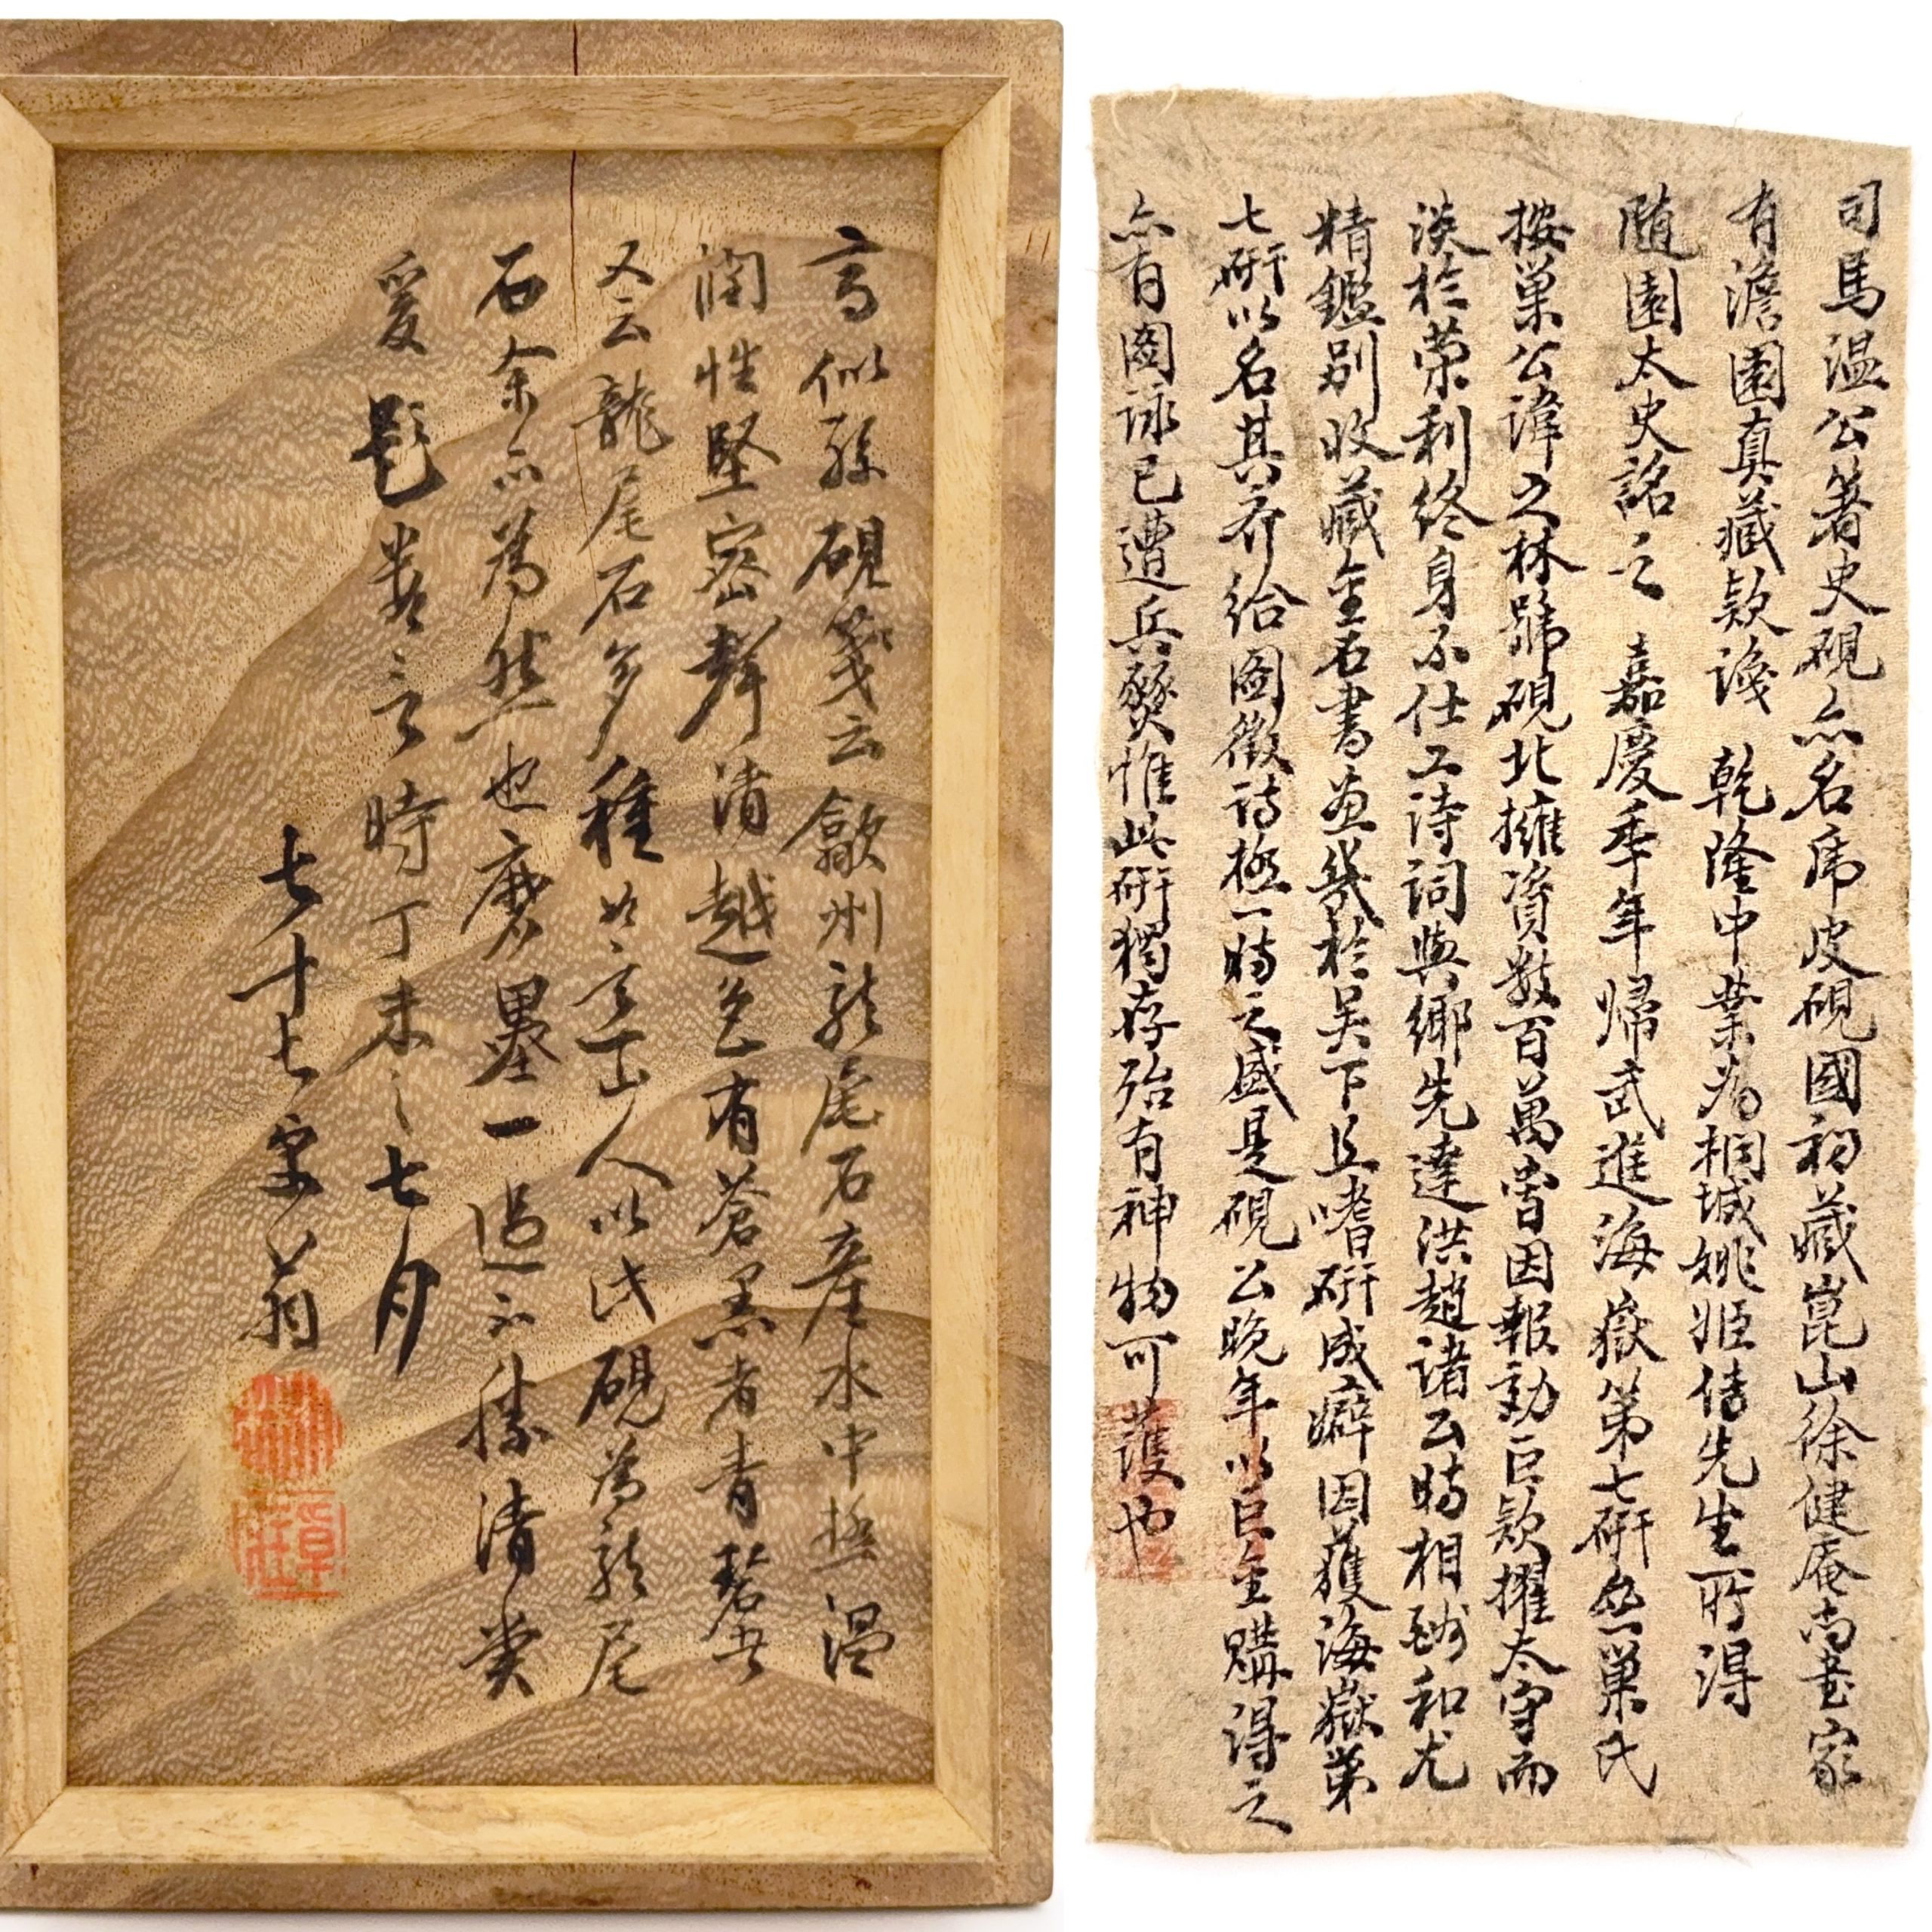 司馬温公著史硯亦名虎皮硯國初藏崑山徐健庵尚書家
有澹園真藏款識 乾隆中葉為桐城姚姬傳先生所得
隨園太史銘之 嘉慶季年歸武進海嶽第七研盦巢氏
按巢公諱之林號硯北擁資數百萬曾因報効巨款擢太守而
淡於榮利終身不仕工詩詞與鄉先達洪趙諸公時相酬和尤
精鑑別收藏金石書畫幾於吴下且嗜研成癖因獲海嶽第
七研以名其齋繪圖徵詩極一時之盛是硯公晚年以巨金購得之
亦有圖詠已遭兵燹惟此研獨存殆有神物可護也
高似孫硯箋云歙州龍尾石産水中極温
潤性堅密聲清越色有蒼黑者青碧者
又云龍尾石多種 山人以此硯為龍尾
石余亦為然也磨墨一過不勝清
爰題數言時丁未之七月
七十七